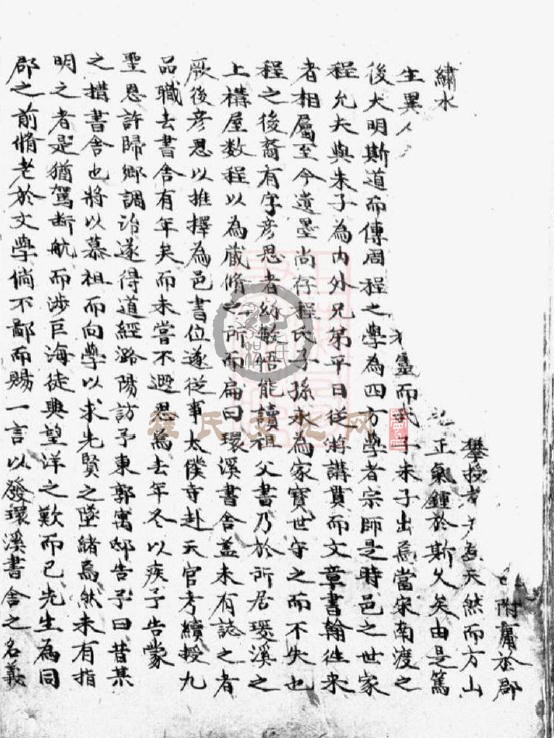 附屬於郡
攀授
天然而方山
正氣鍾於斯久矣由是篤
繡水
生異
靈而
朱子出焉當宋南渡之
後大明斯道而傳周程之學為四方學者宗師是時邑之世家
程允夫與朱子為內外兄弟平日從游講貫而文章書翰往來
者相屬至今遺墨尚存程氏子孫永為家寶世守之而不失也
程之後裔有字彥思者幼敏悟能讀祖父書乃於所居環溪之
上構屋数程以為藏脩之所而扁曰環溪書舍蓋未有誌之者
厥後彥思以推擇為邑書位遂從事太僕寺赴天官考績授九
品職去書舍有年矣而未嘗不遐思焉去年冬以疾予告蒙
聖恩許歸鄉調治遂得道經潞陽訪予東郭寓邸告予曰昔某
之搆書舍也將以慕祖而向學以求先賢之墜緒焉然未有指
明之者是猶駕断航而涉巨海徒興望洋之歎而已先生為同
郡之前脩老於文學倘不鄙而賜一言以發環溪書舍之名義
程氏文化网